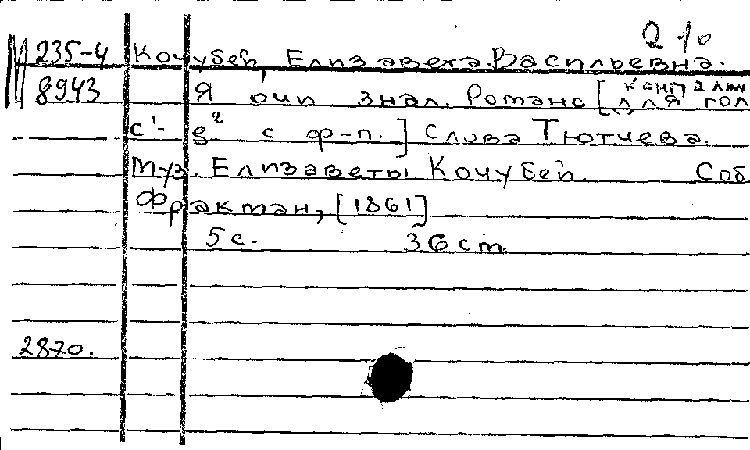 235-4 Кочубей, Елизавета Васильевна.
8943 Я очи знал. Романс [для гол
с¹- g² с ф-п.] Слова Тютчева.
Муз. Елизаветы Кочубей. Спб
Фрактан, [1861]
5с. 36 cm
2870.